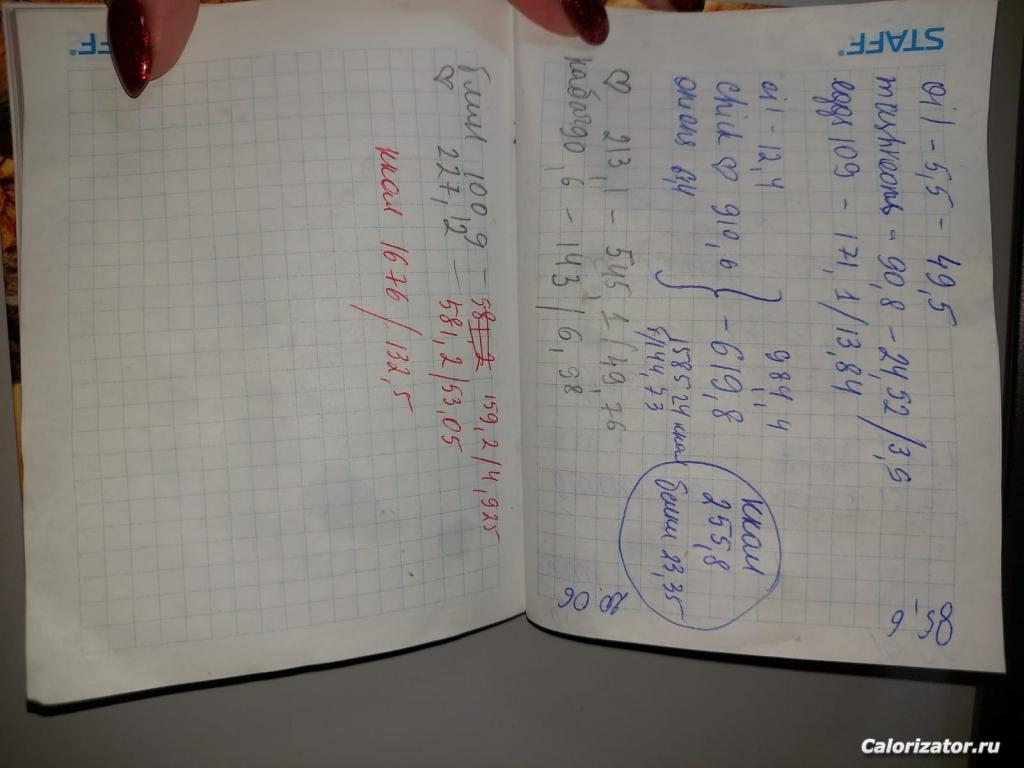 STAFF
oil - 5,5 - 49,5
mushrooms - 90,8 - 24,52 / 3,9
eggs 109 - 171,1 / 13,84
oil - 12,4
984,4
chick ♡ 910,6 } - 619,8
onions 64
158524 ккал
144,73
ккал
255,8
белки 23,35
♡ 213,1 - 545,1 / 49,76
- 143 / 6,98
06
STAFF
блин 100,9 - 159,2 / 4,925
♡ 227,12 - 58,2 / 53,05
ккал 1676 / 132,5
Calorizator.ru